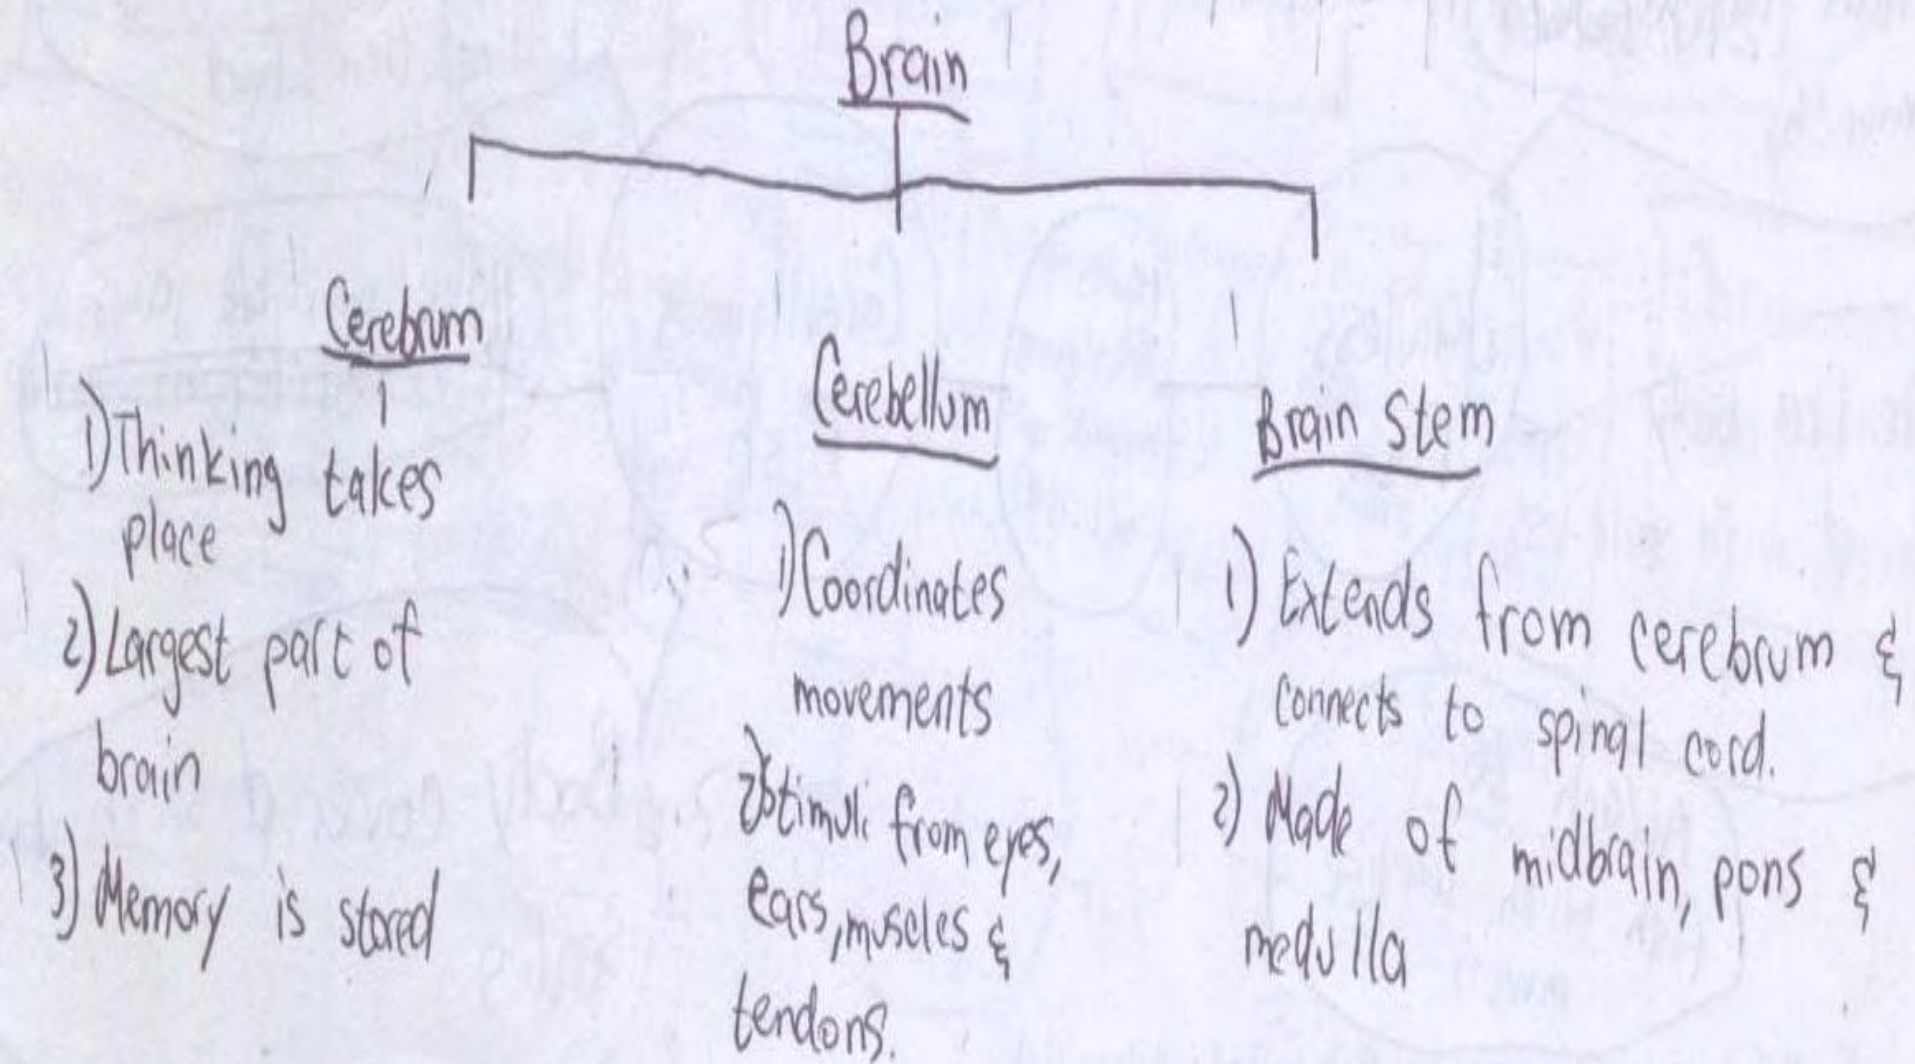 Brain
Cerebrum
1) Thinking takes
place
2) Largest part of
brain
3) Memory is stored
Cerebellum
1) Coordinates
movements
2) Stimuli from eyes,
ears, muscles &
tendons.
Brain Stem
1) Extends from cerebrum &
connects to spinal cord.
2) Made of midbrain, pons &
medulla